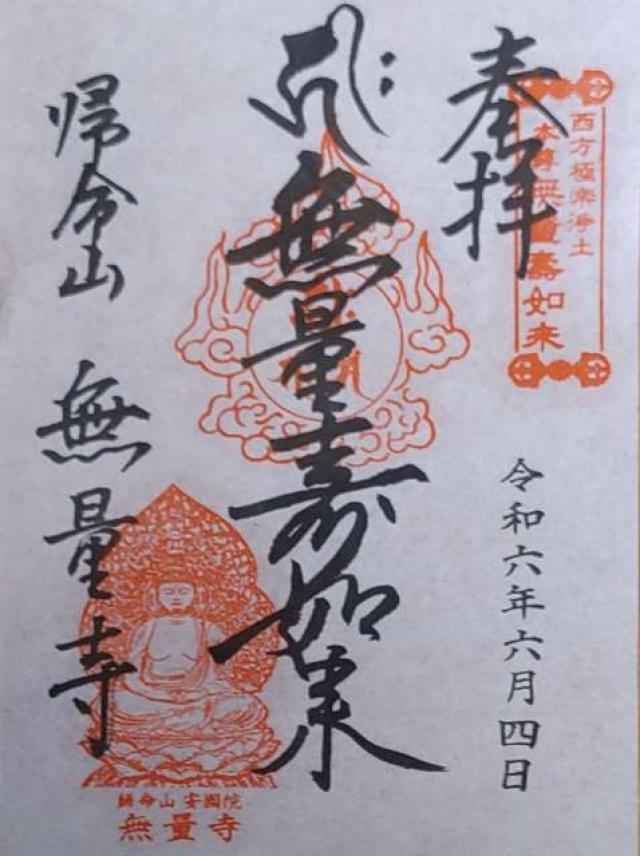 奉拝
西方極楽浄土
本尊無量壽如来
令和六年六月四日
無量寿如来
帰命山 無量寺
歸命山 安國院
無量寺